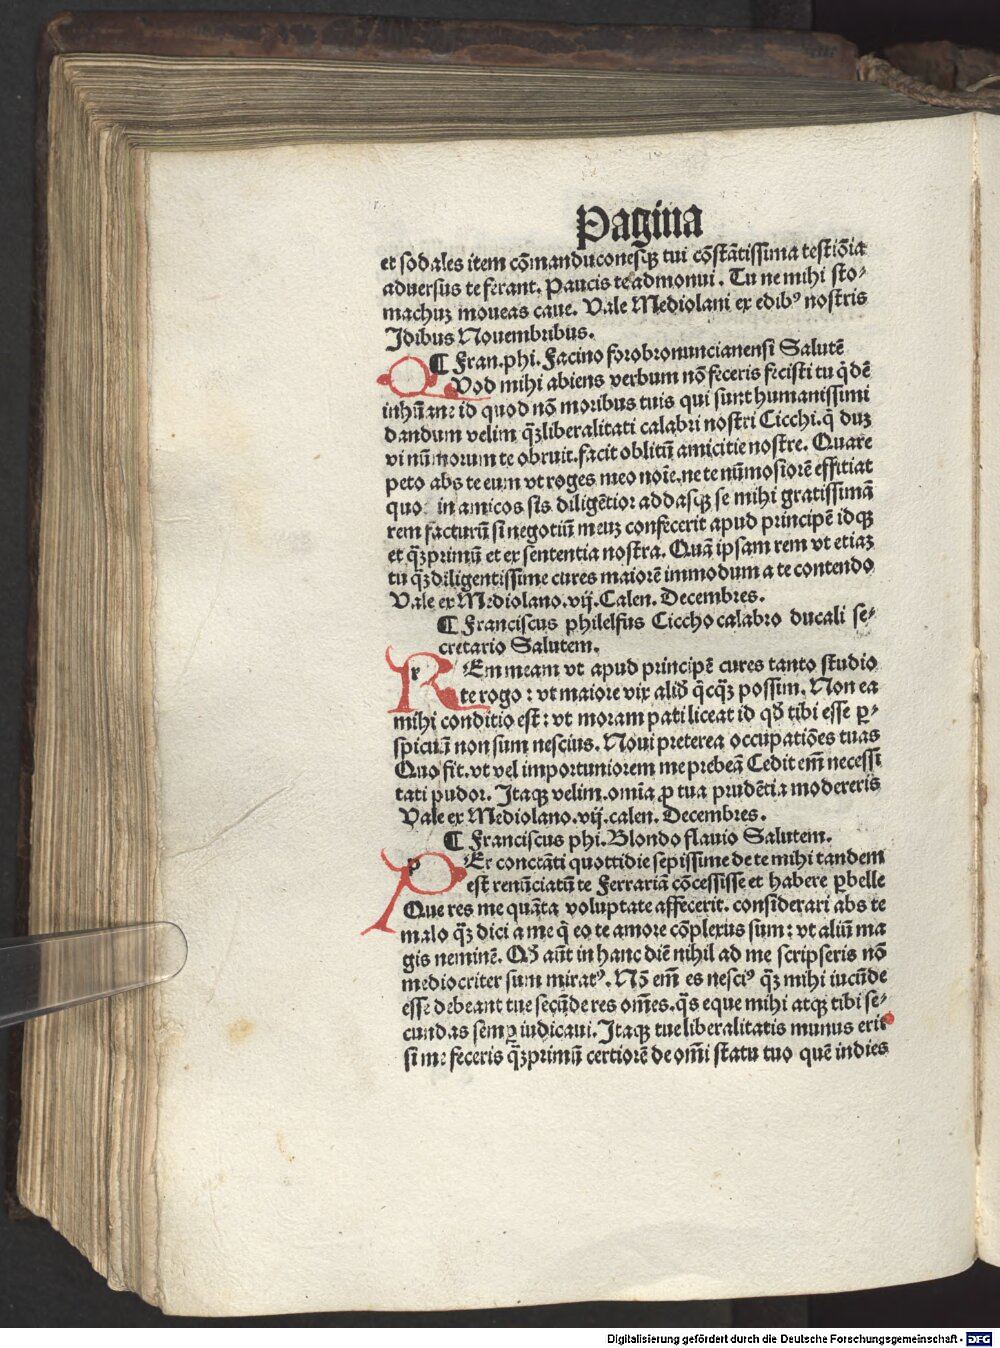 Pagina
et sodales item cōmanduconesqꝫ tui cōstātissima testiōia
aduersus te ferant. Paucis te admonui. Tu ne mihi sto⸗
machuꝫ moueas caue. Vale Mediolani ex edibꝰ nostris
Idibus Nouembribus.
¶ Fran. phi. Facino forobronuncianensi Salutē
QVod mihi abiens verbum nō feceris fecisti tu q̇dē
inhūane id quod nō moribus tuis qui sunt humanissimi
dandum velim qꝫ liberalitati calabri nostri Cicchi. q̇ duꝫ
vi nūmorum te obruit. facit oblitū amicitie nostre. Quare
peto abs te eum vt roges meo noīe. ne te nūmosiorē effitiat
quo in amicos sis diligētior addasqꝫ se mihi gratissimā
rem facturū si negotiū meuꝫ confecerit apud principē idqꝫ
et qꝫprimū et ex sententia nostra. Quā ipsam rem vt etiaꝫ
tu qꝫdiligentissime cures maiorē immodum a te contendo
Vale ex Mediolano. vij. Calen. Decembres.
¶ Franciscus philelfus Ciccho calabro ducali se⸗
cretario Salutem.
REm meam vt apud principē cures tanto studio
te rogo : vt maiore vix aliđ q̇cqꝫ possim. Non ea
mihi conditio est : vt moram pati liceat id qđ tibi esse ꝑ⸗
spicuū non sum nescius. Noui preterea occupatiōes tuas
Quo fit. vt vel importuniorem me prebeā Cedit em̄ necessi
tati pudor. Itaqꝫ velim. omīa ꝓ tua prudētia modereris
Vale ex Mediolano. vij. calen. Decembres.
¶ Franciscus phi. Blondo flauio Salutem.
PEr conctāti quottidie sepissime de te mihi tandem
est renūciatū te Ferrariā cōcessisse et habere ꝑbelle
Que res me quāta voluptate affecerit. considerari abs te
malo qꝫ dici a me q̇ eo te amore cōplexus sum : vt aliū ma
gis neminē. Qđ aūt in hanc diē nihil ad me scripseris nō
mediocriter sum miratꝰ. Nō em̄ es nesciꝰ qꝫ mihi iucūde
esse debeant tue secūde res om̄es. q̇s eque mihi atqꝫ tibi se⸗
cundas semꝑ iudicaui. Itaqꝫ tue liberalitatis munus erit
si me feceris qꝫprimū certiorē de om̄i statu tuo quē indies
Digitalisierung gefördert durch die Deutsche Forschungsgemeinschaft - DFG